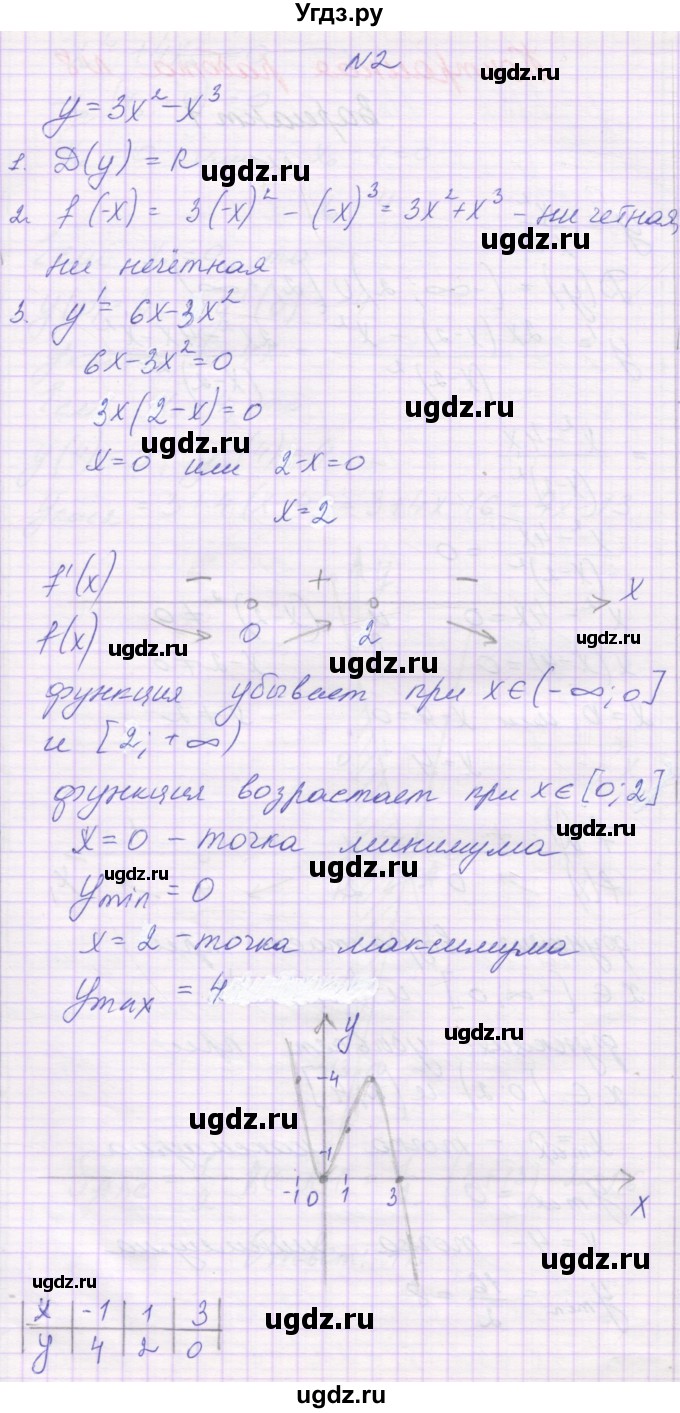 Угдз.ру
N2
y=3x²-x³
1. D(y) = R
ugdz.ru
ugdz.ru
2. f(-x) = 3(-x)² - (-x)³ = 3x²+x³ - ни четная,
ugdz.ru
ни нечётная
3. y' = 6x-3x²
6x-3x²=0
3x(2-x)=0
ugdz.ru
ugdz.ru
x=0 или 2-x=0
x=2
f'(x) - + - x
f(x) 0 2
ugdz.ru ugdz.ru ugdz.ru
функция убывает при x∈(-∞;0]
и [2;+∞)
функция возрастает при x∈[0;2]
x=0 - точка минимума
ugdz.ru ugdz.ru
ymin = 0
x=2 - точка максимума
ymax = 4
y
ugdz.ru
4
ugdz.ru
1
-1 0 1 3 x
ugdz.ru
ugdz.ru
x -1 1 3
ugdz.ru
y 4 2 0
ugdz.ru